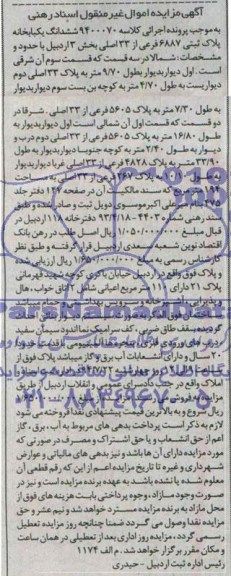 آگهی مزایده اموال غیر منقول اسناد رهنی
به موجب پرونده اجرائی کلاسه ۹۴۰۰۰۷۰ ششدانگ یکبابخانه
پلاک ثبتی ۶۸۸۷ فرعی از ۳۳ اصلی بخش ۳ اردبیل با حدود و
مشخصات: شمالا در سه قسمت که قسمت سوم آن شرقی
است. اول دیوار بدیوار بطول ۹/۷۰ متر به پلاک ۳۳ اصلی دوم
دیواریست به طول ۴/۷۰ متر به کوچه بن بست سوم دیوار بدیوار
به طول ۷/۳۰ متر به پلاک ۵۶۰۵ فرعی از ۳۳ اصلی. شرقا در
دو قسمت که قسمت اول آن شمالی است اول دیوار بدیوار به
طول ۱۶/۸۰ متر به پلاک ۵۶۰۵ فرعی از ۳۳ اصلی دوم درب و
دیوار به طول ۲/۴۰ متر به کوچه جنوبا دیوار بدیوار به طول
۳۳/۹۰ متر به پلاک ۴۸۲۸ فرعی از ۳۳ اصلی غربا دیوار بدیوار
به طول پلاک ۲۶۷ فرعی از ۳۳ اصلی به مساحت
۱۹۴ متر مربع که سند مالکیت آن در صفحه ۱۲۷ دفتر جلد
۴۷۵ بنام علی اکبر موسوی دویل ثبت و صادر شده و طبق
سند رهنی شماره ۴۴۰۳ - ۹۳/۴/۱۸ دفترخانه ۱۱۸ اردبیل در
قبال مبلغ ۱/۰۵۰/۰۰۰/۰۰۰ ریال اصل طلب در رهن بانک
اقتصاد نوین شعبه سعدی اردبیل قرار گرفته و طبق نظر
کارشناس رسمی به مبلغ ۱/۶۵۰/۰۰۰/۰۰۰ ریال ارزیابی شده
و پلاک فوق واقع در اردبیل خیابان باکری کوچه شهید قهرمانی
پلاک ۲۱ دارای متر مربع اعیانی شامل ۲ اتاق خواب، هال
و پذیرایی، آشپزخانه و سرویس بهداشتی و حمام میباشد
گردیده سقف طاق ضربی، کف سرامیک نمای سیمان سفید
۲۰ سال و دارای انشعابات آب برق و گاز میباشد پلاک فوق از
املاک واقع در جنب دادسرای عمومی و انقلاب اردبیل از طریق
مزایده به فروش می رسد. مزایده از مبلغ
ریال شروع و به بالاترین قیمت پیشنهادی نقدا فروخته می شود
لازم به ذکر است پرداخت بدهی های مربوط به آب، برق، گاز
اعم از حق انشعاب و یا حق اشتراک و مصرف در صورتی که
مورد مزایده دارای آن ها باشد و نیز بدهی های مالیاتی و عوارض
شهرداری و غیره تا تاریخ مزایده اعم از این که رقم قطعی آن
معلوم شده یا نشده باشد به عهده برنده مزایده است و نیز در
صورت وجود مازاد، وجوه پرداختی بابت هزینه های فوق از
محل مازاد به برنده مزایده مسترد خواهد شد و نیم عشر و حق
مزایده نقدا وصول می گردد ضمنا چنانچه روز مزایده تعطیل
رسمی گردد، مزایده روز اداری بعد از تعطیلی در همان ساعت
و مکان مقرر برگزار خواهد شد. م الف ۱۱۷۴
رئیس اداره ثبت اردبیل - حیدری
ParsNamadData
۰۲۱-۸۸۳۴۹۶۷۰-۵